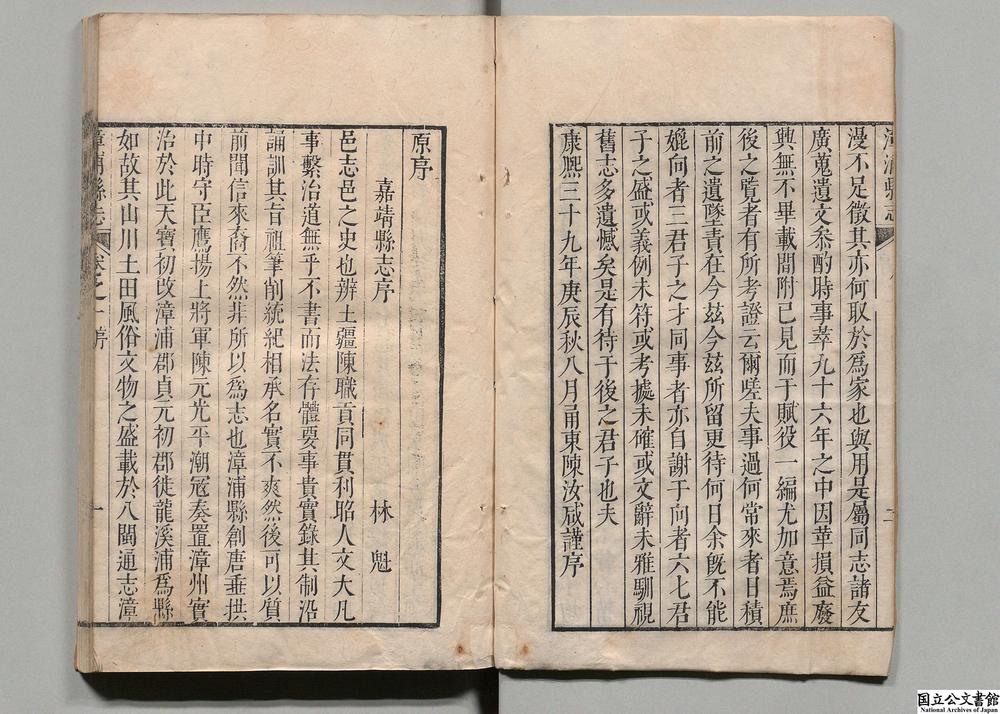 漳浦縣志
漫不足徵其亦何取於爲家也與用是屬同志諸友
廣蒐遺文叅酌時事萃九十六年之中因革損益廢
興無不畢載間附己見而于賦役一編尤加意焉庶
後之覽者有所考證云爾嗟夫事過何常來者日積
前之遺墜責在今玆今玆所留更待何日余旣不能
媲向者三君子之才同事者亦自謝于向者六七君
子之盛或義例未符或考據未確或文辭未雅馴視
舊志多遺憾矣是有待于後之君子也夫
康熙三十九年庚辰秋八月甬東陳汝咸謹序
二
原序
嘉靖縣志序
林魁
邑志邑之史也辨土疆陳職貢同貫利昭人文大凡
事繫治道無乎不書而法存體要事貴實錄其制沿
誦訓其旨祖筆削統紀相承名實不爽然後可以質
前聞信來裔不然非所以爲志也漳浦縣創唐垂拱
中時守臣鷹揚上將軍陳元光平潮冦奏置漳州實
治於此天寶初改漳浦郡貞元初郡徙龍溪浦爲縣
如故其山川土田風俗文物之盛載於八閩通志漳
漳浦縣志
卷之
序
一
国立公文書館
National Archives of Japan